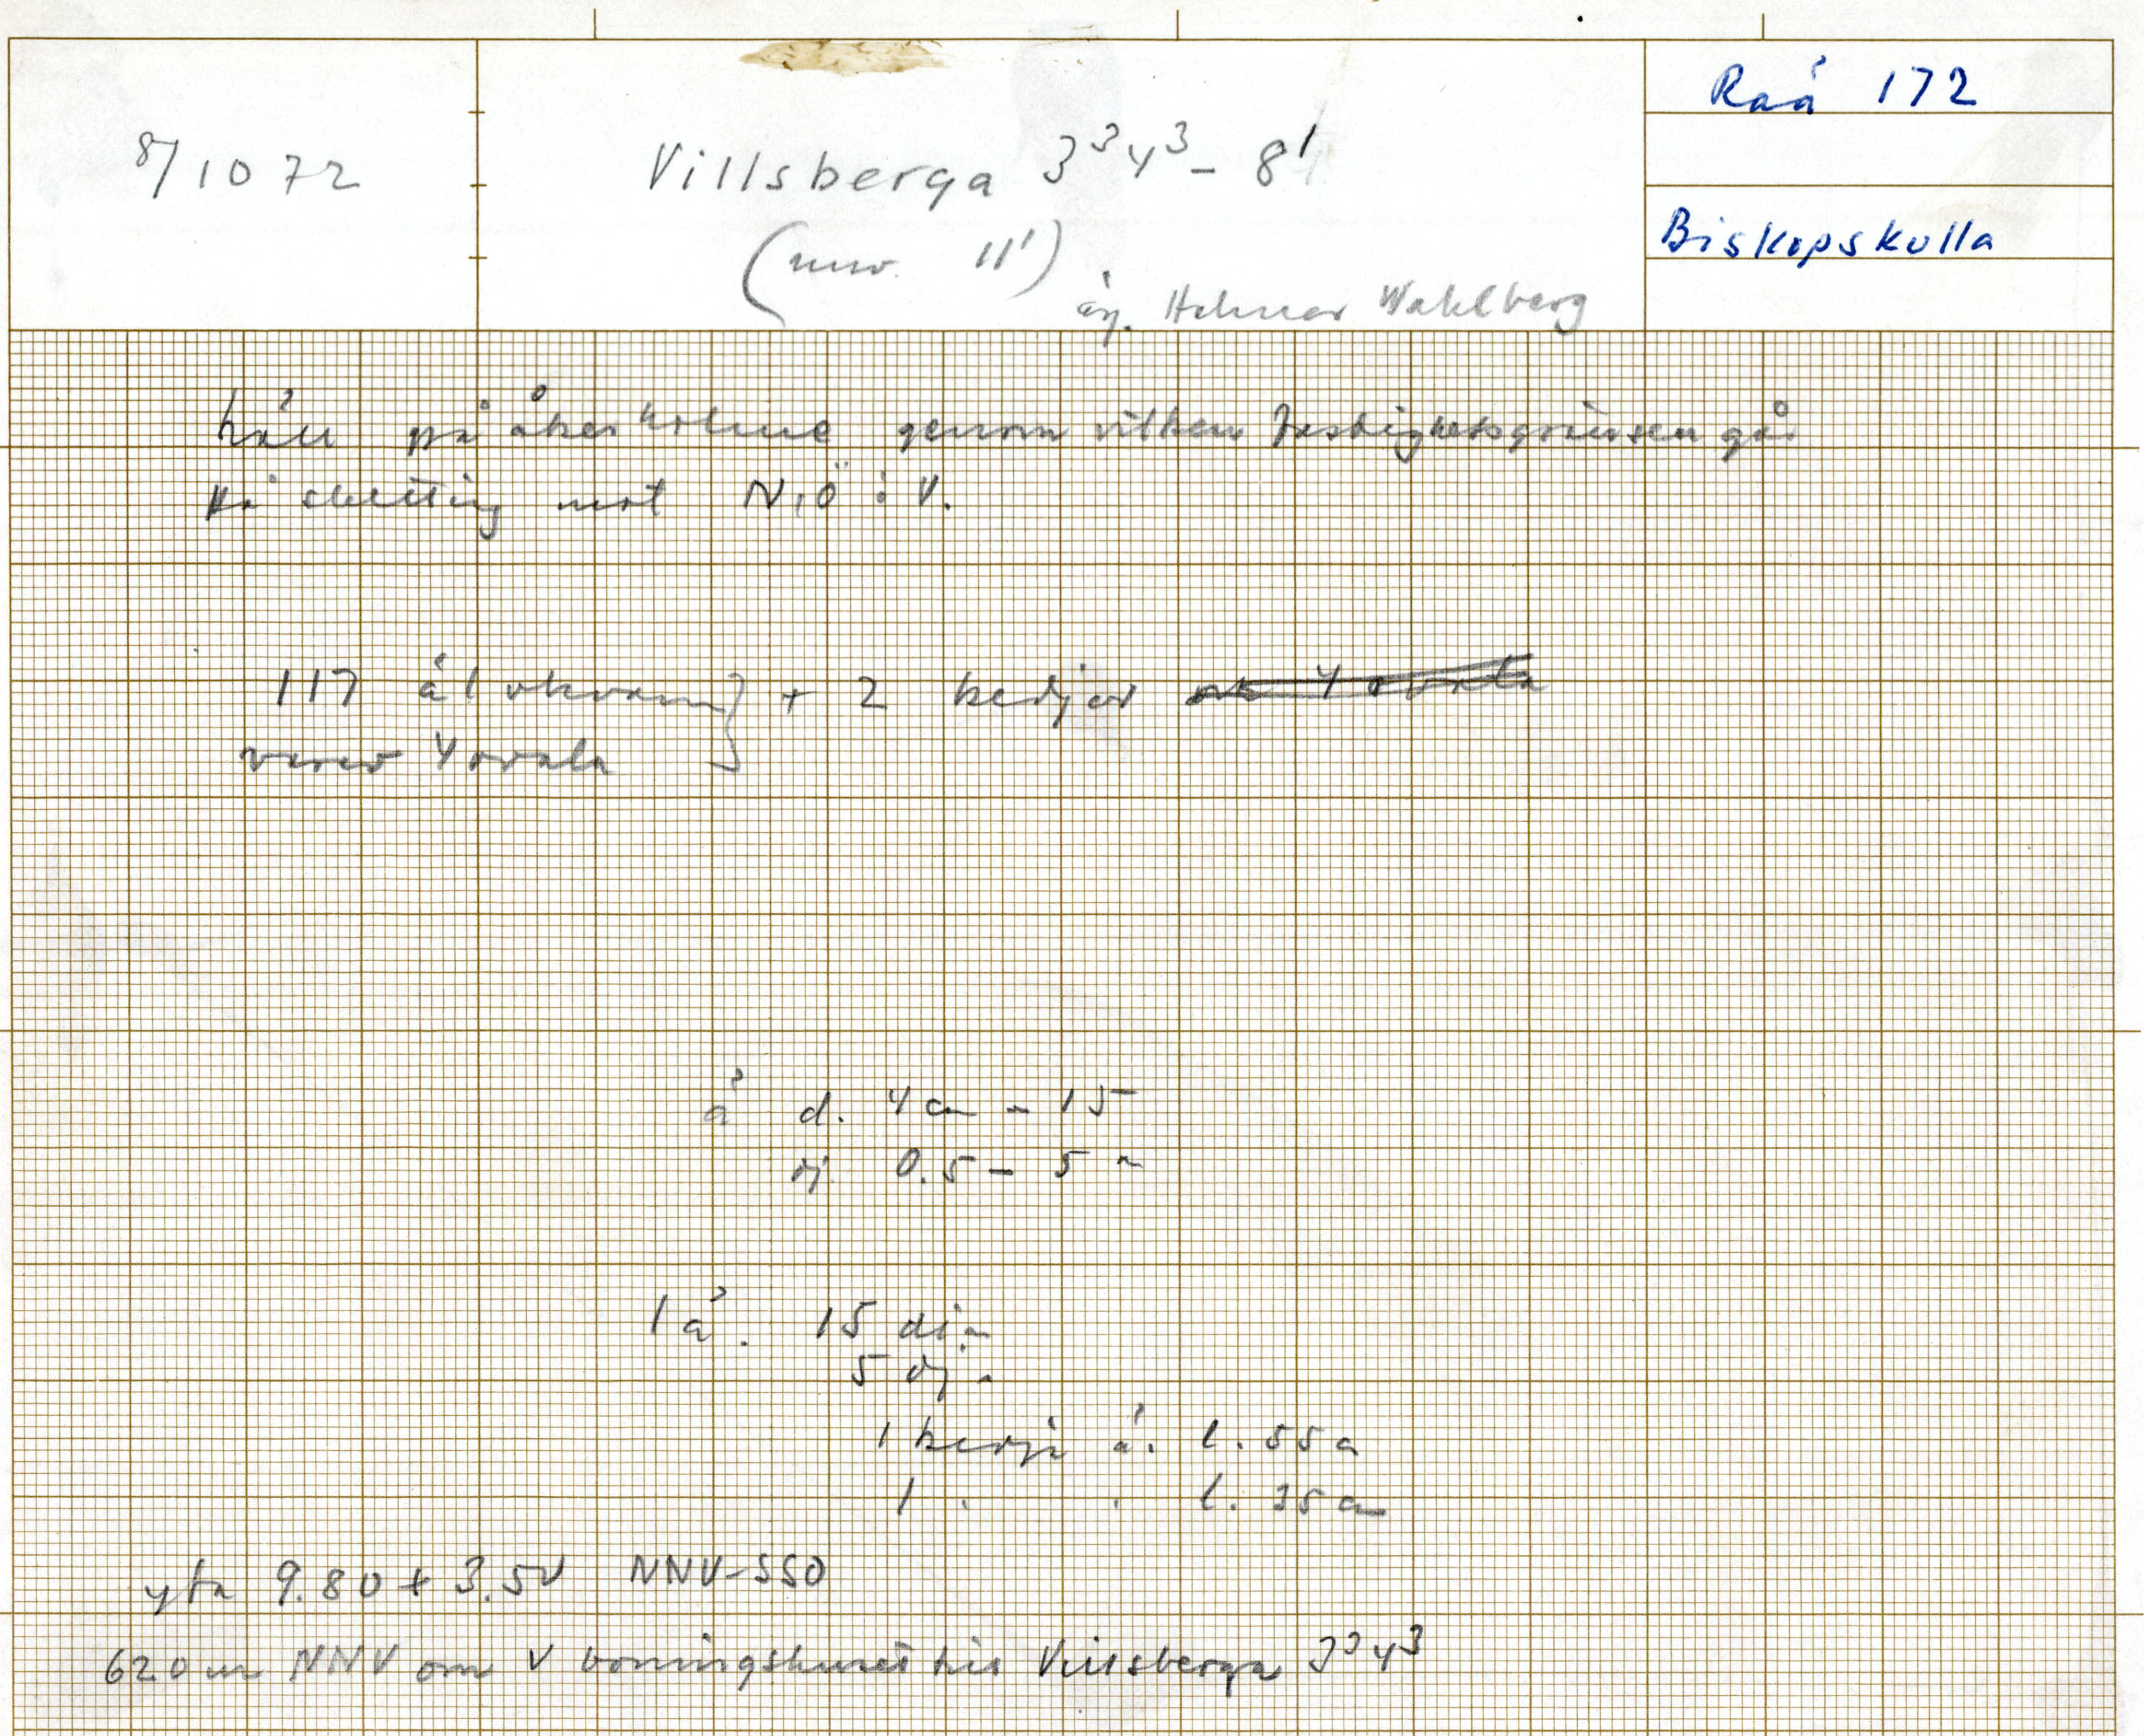 8/10 72
Villsberga 3³4³ - 8¹
(nuv. 11¹)
äg. Helmer Wahlberg
Raä 172
Biskopskulla
häll på åkerholme genom vilken fastighetsgränsen går
på sluttning mot N, Ö o V.
117 älvkvarn } + 2 kedjor
varav 4 ovala
ä d. 4 cm - 15
dj. 0.5 - 5
1 ä. 15 di
5 dj
1 kedja ä. l. 55 c
1 " " l. 35 cm
yta 9.80 + 3.50 NNV-SSO
620 m NNV om V boningshuset till Villsberga 3³4³